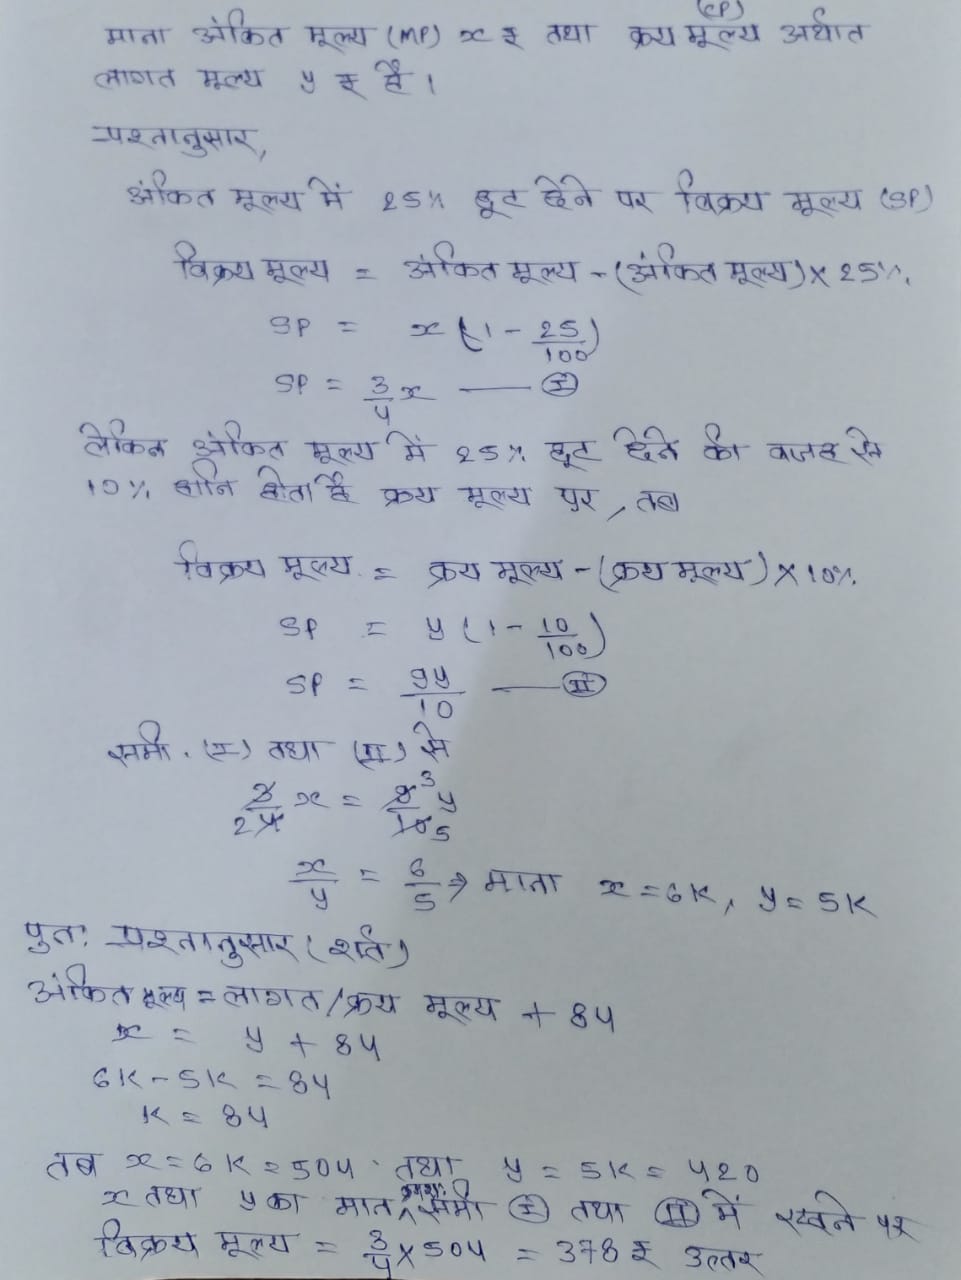 माना अंकित मूल्य (MP) x ₹ तथा क्रय मूल्य (CP) अर्थात
लागत मूल्य y ₹ है।
प्रश्नानुसार,
अंकित मूल्य में 25% छूट देने पर विक्रय मूल्य (SP)
विक्रय मूल्य = अंकित मूल्य - (अंकित मूल्य) × 25%
SP = x (1 - 25/100)
SP = 3/4 x —— (I)
लेकिन अंकित मूल्य में 25% छूट देने की वजह से
10% हानि होता है क्रय मूल्य पर, तब
विक्रय मूल्य = क्रय मूल्य - (क्रय मूल्य) × 10%
SP = y (1 - 10/100)
SP = 9y/10 —— (II)
समी. (I) तथा (II) से
3/4 2 x = 9 3/10 5 y
x/y = 6/5 ⇒ माना x = 6K, y = 5K
पुनः प्रश्नानुसार (शर्त)
अंकित मूल्य = लागत/क्रय मूल्य + 84
x = y + 84
6K - 5K = 84
K = 84
तब x = 6K = 504 तथा y = 5K = 420
x तथा y का मान क्रमशः समी (I) तथा (II) में रखने पर
विक्रय मूल्य = 3/4 × 504 = 378 ₹ उत्तर